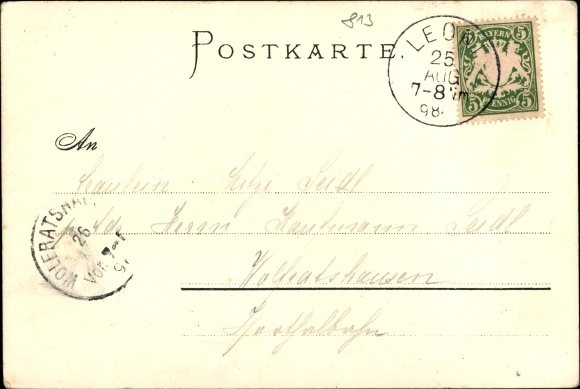 813
POSTKARTE.
LEONI
25
AUG
7-8 Vm.
98.
BAYERN
5 5
5 PFENNIG 5
An
Fräulein Seidl
Herrn Kaufmann Seidl
Wolfratshausen
Isarthalbahn
WOLFRATSHAU
26
Vor. 7-
9